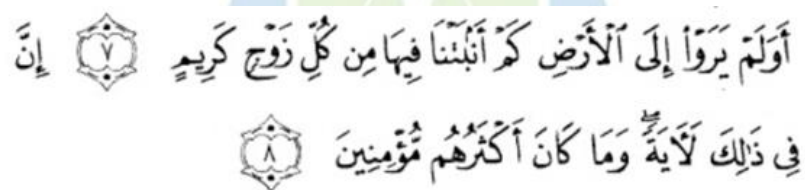 أَوَلَمْ يَرَوْا۟ إِلَى ٱلْأَرْضِ كَمْ أَنۢبَتْنَا فِيهَا مِن كُلِّ زَوْجٍ كَرِيمٍ ٧ إِنَّ
فِى ذَٰلِكَ لَـَٔايَةً ۖ وَمَا كَانَ أَكْثَرُهُم مُّؤْمِنِينَ ٨